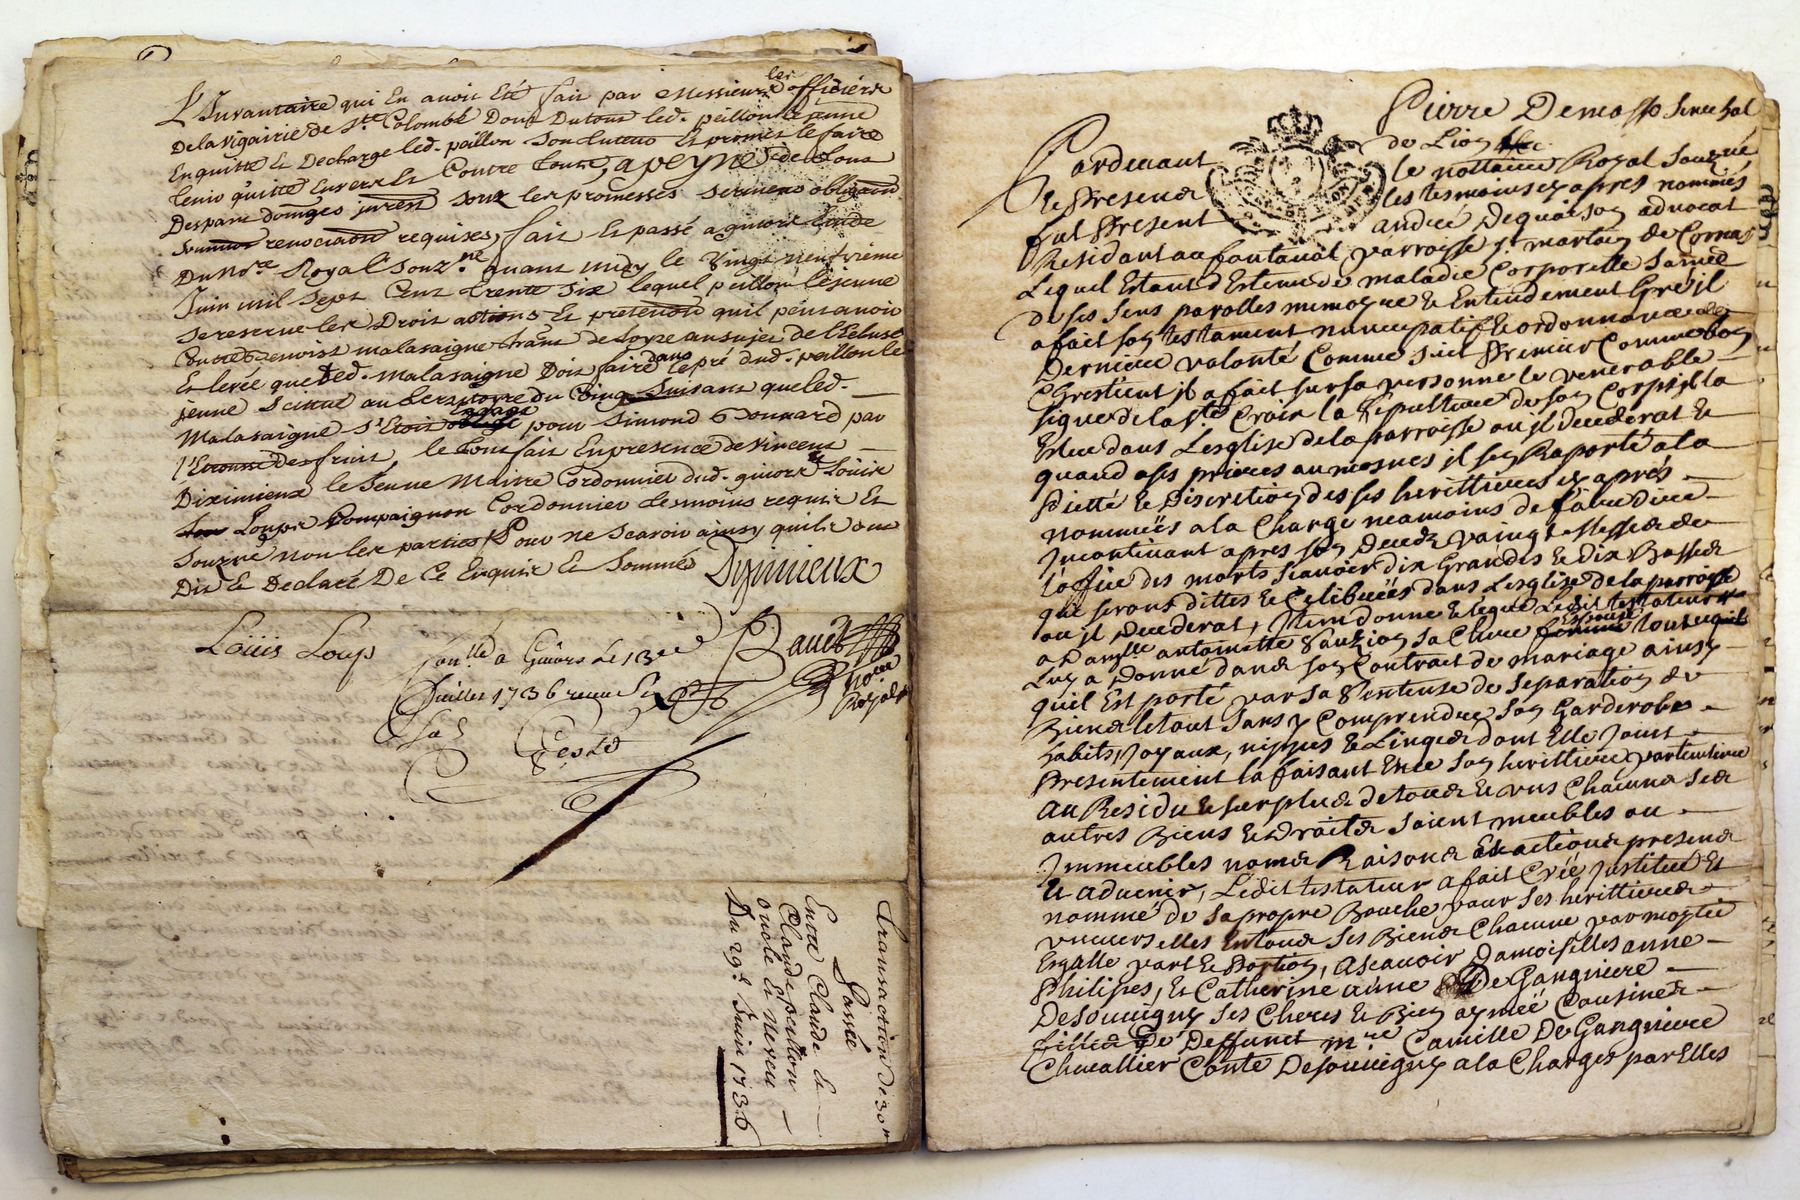 L'Invantaire qui En avoit Eté fait par Messieurs les officiers
De la vigairie de Ste. Colombe Dont Du tout led. peillon le jeune
En quitte Et Decharge led. peillon son tuteur Et promet le faire
tenir quitte Envers Et Contre tous, a peyne de tous
Despans domages sous les promesses serment
renociaon requises, fait Et passé a givors Etude
Du nore. Royal Souz.né avant midy le Vingt neufvieme
Juin mil sept Cent trente six lequel peillon le jeune
se reserve les Droit actions Et pretention quil peut avoir
Contre benoist malasaigne de loyre au sujet de l'Ecluse
Et levée que led. malasaigne Doit faire dans le pré dud. peillon le
jeune scittué au du suivant que led.
Malasaigne s'Etoit Engagé pour Simond par
des fruit, le tout fait En presence de Vincent
Diximieux le Jeune Maitre Cordonnier dud. givors Et Louis
Loup Compaignon Cordonnier tesmoins requis Et
souz.né non les parties Pour ne scavoir ainsy quils ont
Dit Et Declaré De Ce Enquis Et Sommés Diximieux
Loüis Loup
a Givors Le 13e
Juillet 1736 receu
Royal
transaction de 30#
Passée
Entre Claude Et
Claude peillon
oncle Et Neveu
Du 29e Juin 1736
Pierre Demasso Senechal
de Lion
Pardevant
le nottaire Royal Souz.né
le Present
les tesmoins cy apres nommés
fut Present
André Dequaison advocat
Residant au fontanal, parroisse St martin de Cornas
Lequel Estant Destenu de maladie Corporelle Sain
de ses Sens parolles memoyre & Entendement Gré il
a fait son testament nuncupatif & ordonnance de
Derniere volonté Comme suit Premier Comme bon
Chrestient il a fait sur sa personne le venerable
signe de la Ste Croix la sepulture de son Corps il la
Eslue dans Lesglise de la parroisse ou il Decederat &
quand a ses prieres aumosnes il sen Raporte a la
Pietté & Discretion des ses herittieres cy aprés
nommëës a la Charge neamoins de faire dire
Incontinant apres son Decedz vaingt Messes de
l'office des morts scavoir dix Grandes & dix Basses
qui seront dittes & Celibrëës dans Lesglise de la parroisse
ou il Decederat, Item donne & legue Ledit testateur
a Damylle antoinette sa Chere Espouse tout ce quil
Luy a donné dans son Contrat de mariage ainsy
quil Est porté par sa Sentense de separation de
Biens le tout sans y Comprendre son Garderobes
habits, Joyaux, nippes & Linges dont Elle Jouit
Presentement la faisant En ce son herittiere particuliere
Au Residu & surplus de tous & uns Chacuns ses
autres Biens & Droits soient meubles ou
Immeubles noms Raisons actions present
& advenir, Ledit testateur a fait Créé Institué Et
nommé de sa propre Bouche pour ses herittieres
universelles En tous ses Biens Chacune par moytié
Esgalle part & Portion, ascavoir Damoiselles anne
Philipes, Et Catherine aimé De Gangniere
Desouvigny ses Cheres & Bien aymëë Cousines
filles De Deffunct mre Camille De Gangniere
Chevallier Conte Desouvigny a la Charges par Elles